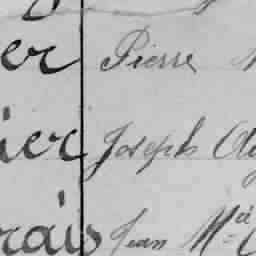 er Pierre
ier Joseph
rais Jean M